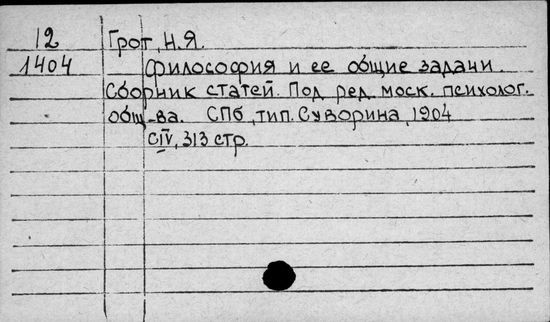 12 Грот, Н.Я.
1404 Философия и ее общие задачи.
Сборник статей. Под ред. моск. психолог.
общ-ва. СПб, тип. Суворина, 1904
CIV, 313 стр.